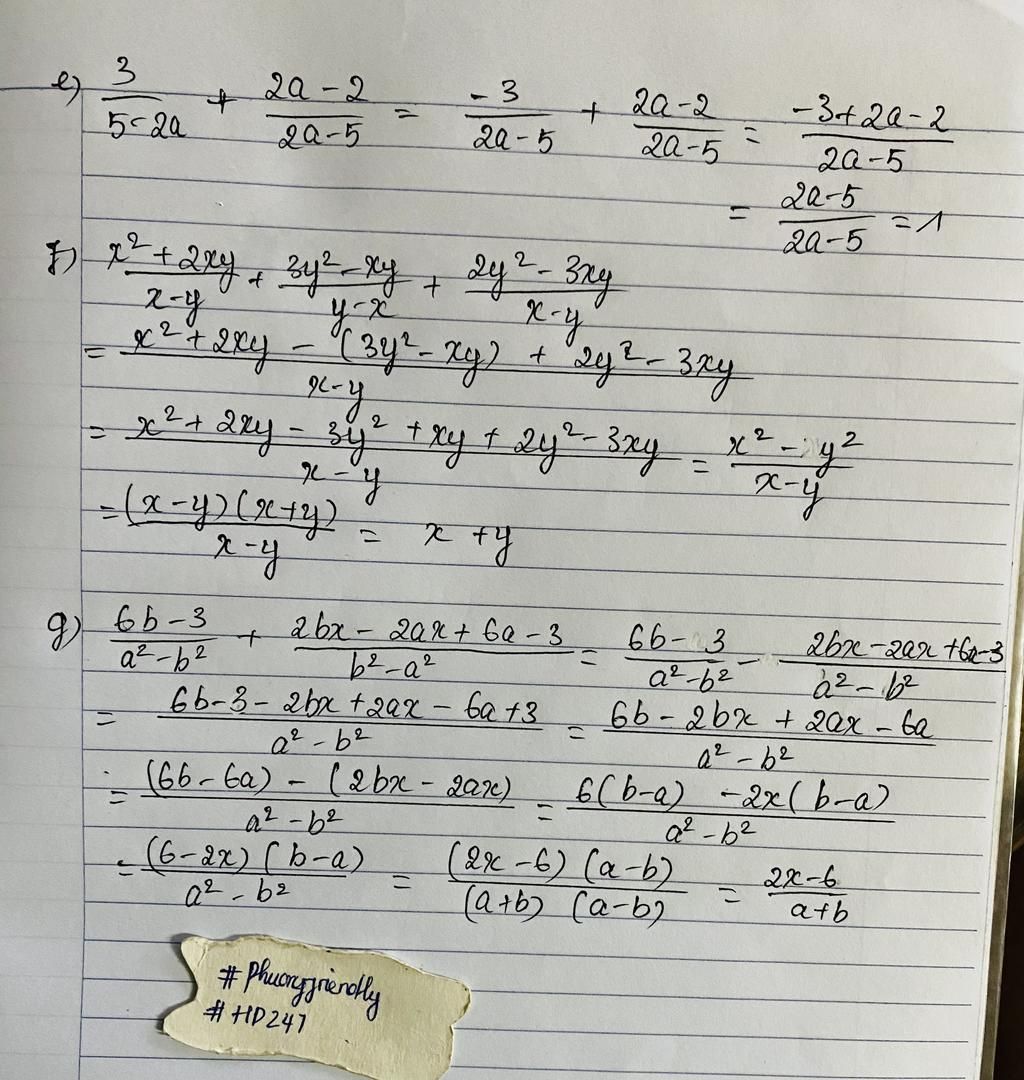 e) 3/(5-2a) + (2a-2)/(2a-5) = -3/(2a-5) + (2a-2)/(2a-5) = (-3+2a-2)/(2a-5)
= (2a-5)/(2a-5) = 1
f) (x²+2xy)/(x-y) + (3y²-xy)/(y-x) + (2y²-3xy)/(x-y)
= (x²+2xy - (3y²-xy) + 2y²-3xy)/(x-y)
= (x²+2xy-3y²+xy+2y²-3xy)/(x-y) = (x²-y²)/(x-y)
= (x-y)(x+y)/(x-y) = x+y
g) (6b-3)/(a²-b²) + (2bx-2ax+6a-3)/(b²-a²) = (6b-3)/(a²-b²) - (2bx-2ax+6a-3)/(a²-b²)
= (6b-3-2bx+2ax-6a+3)/(a²-b²) = (6b-2bx+2ax-6a)/(a²-b²)
= ((6b-6a)-(2bx-2ax))/(a²-b²) = (6(b-a)-2x(b-a))/(a²-b²)
= (6-2x)(b-a)/(a²-b²) = (2x-6)(a-b)/((a+b)(a-b)) = (2x-6)/(a+b)
# Phuongfriendly
# HD247